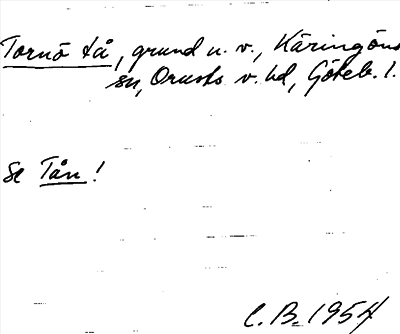 Tornö tå, grund u. v., Käringöns
sn, Orusts v. hd, Göteb. l.
Se Tån!
C. B. 1954